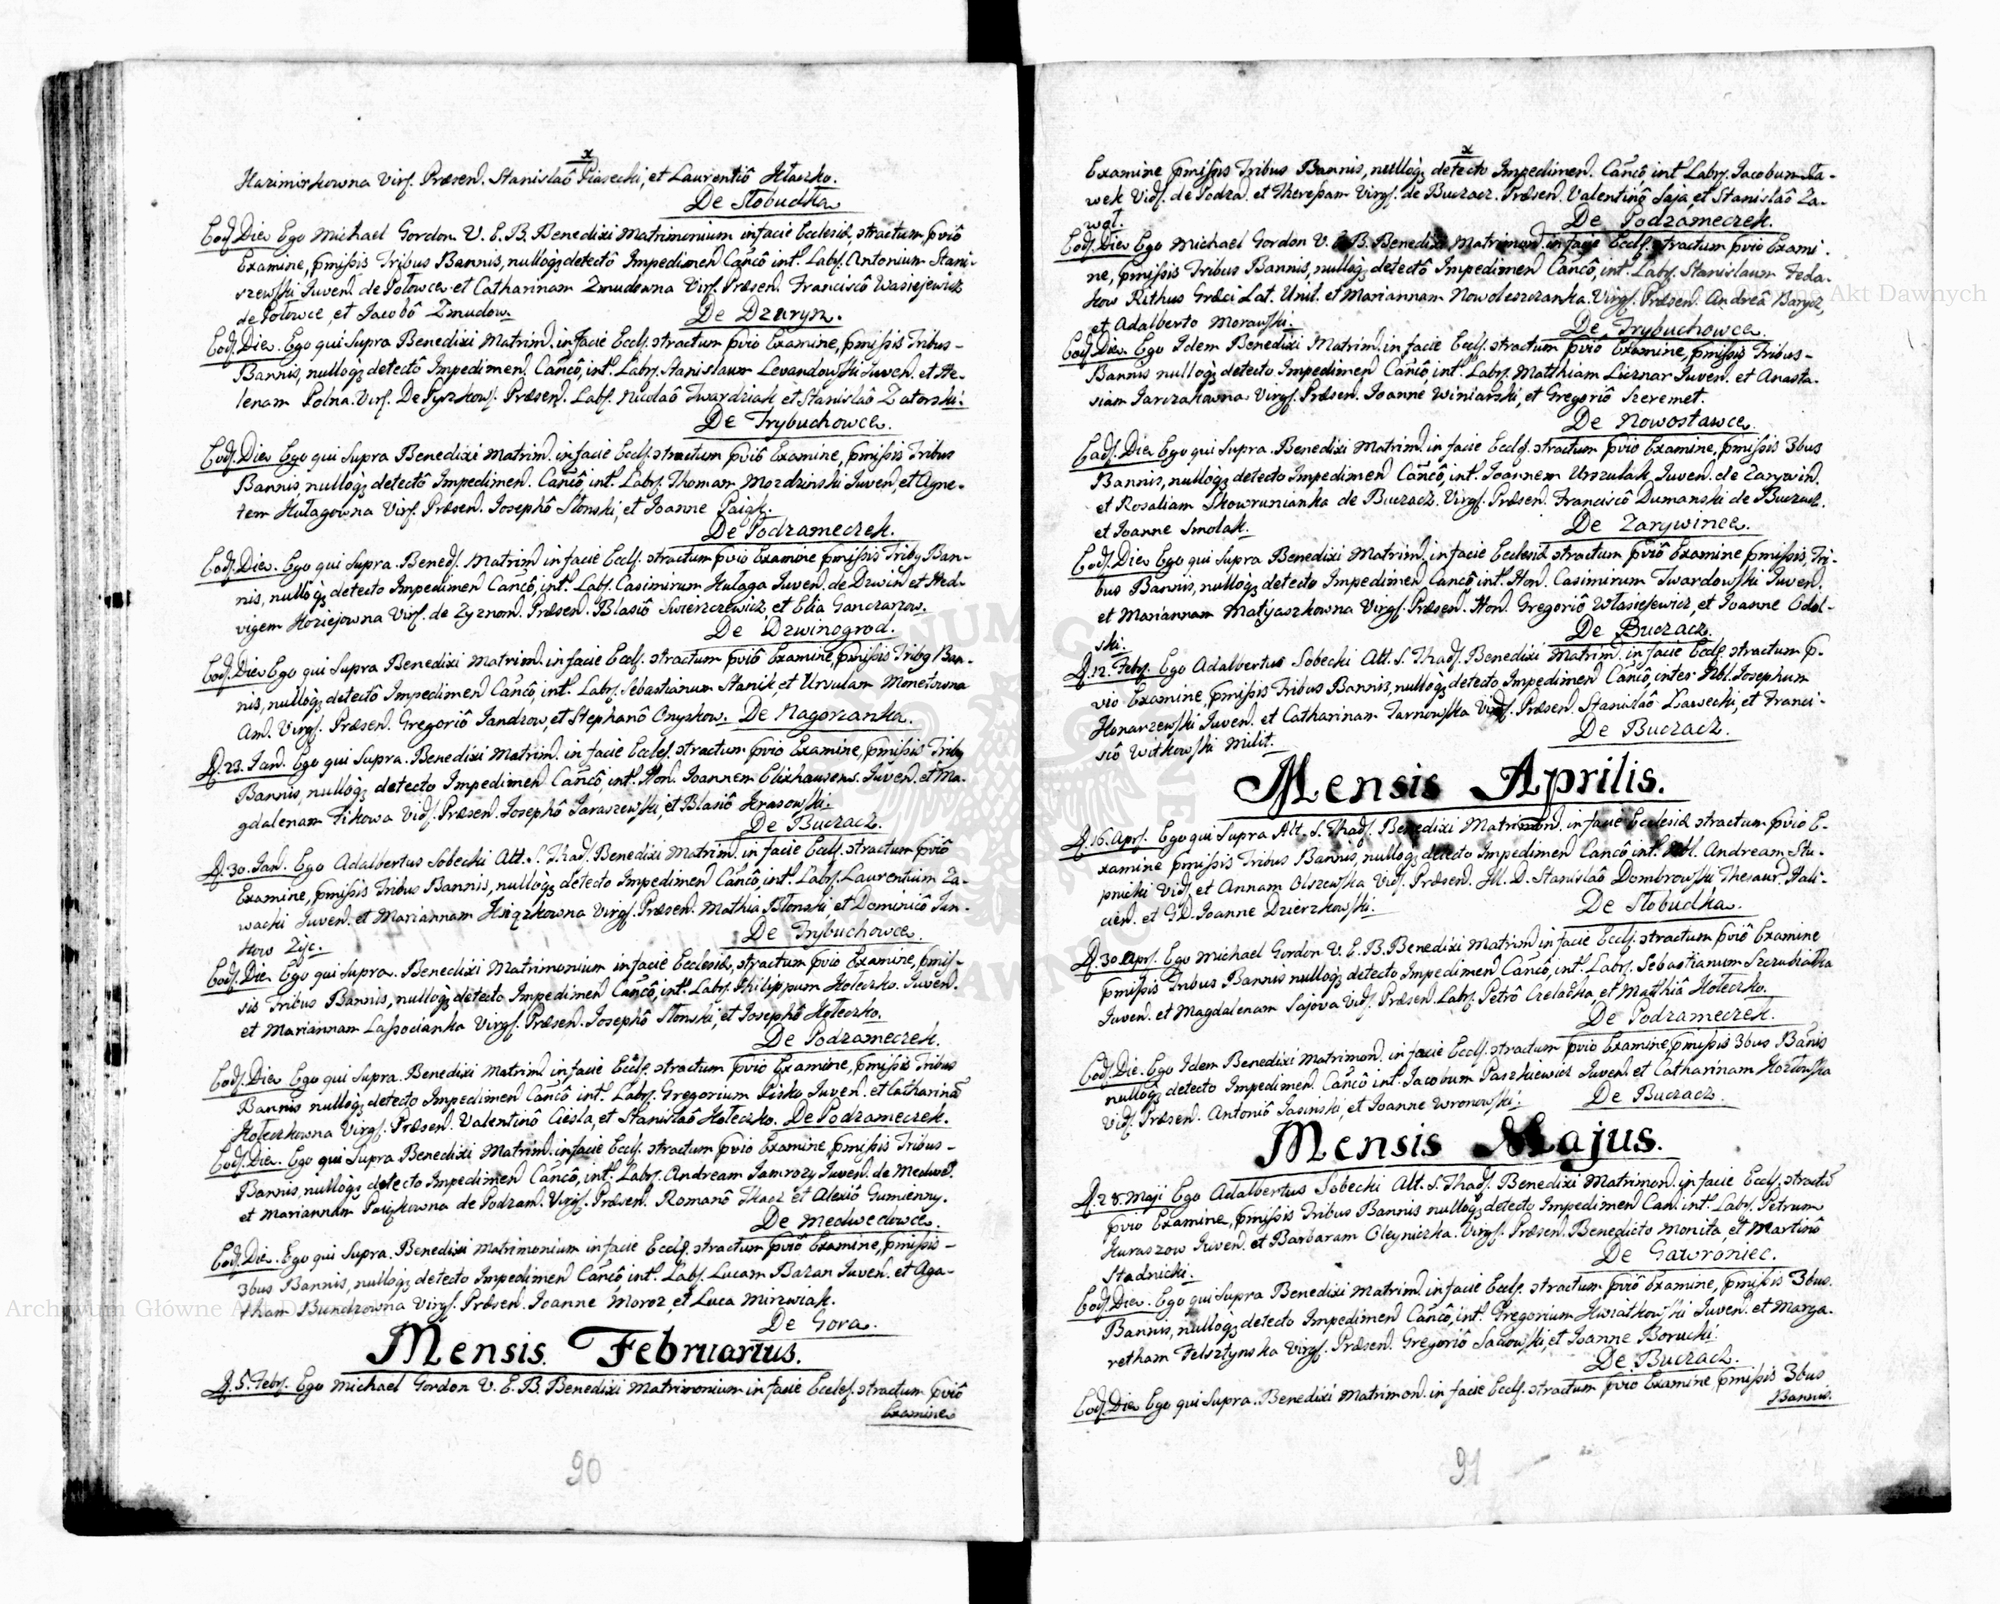 x
Kazimirkowna Virg. Præsen. Stanislaô Piasecki, et Laurentiô Kłaczko.
De Słobudka
Eod. Die Ego Michael Gordon V. E. B. Benedixi Matrimonium in facie Ecclesiæ, stractum pviô
Examine, pmissis Tribus Bannis, nullòqȝ detectô Impedimen Cancô intˢ Labs. Antonium Stani-
szewski Iuven. de Połowce et Catharinam Zmudowna Virg. Præsen. Franciscô Wasiejewicz
de Połowce, et Iacobô Zmudow.
De Dzuryn.
Eod. Die. Ego qui Supra Benedixi Matrim. in facie Eccls. stractum pviô Examine, pmissis Tribus-
Bannis, nullòqȝ detectô Impedimen. Cancô, intˢ Labs. Stanislaum Lewandowski Iuven. et He-
lenam Polna Virg. De Pyszkow. Præsen. Labs. Nicolaô Twardziak et Stanislaô Zatorski.
De Trybuchowce.
Eod. Die Ego qui Supra Benedixi Matrim. in facie Eccls. stractum pviô Examine, pmissis Tribus
Bannis, nullòqȝ detectô Impedimen. Cancô, intˢ Labs. Thomam Mozdzinski Iuven, et Agne-
tem Hułagowna Virg. Præsen. Iosephô Słonski, et Ioanne Paigk.
De Podzameczek.
Eod. Die. Ego qui Supra. Bened. Matrim in facie Eccls. stractum pvio Examine pmissis Tribȝ Ban-
nis, nullòqȝ detecto Impedimen Cancô, intˢ Labs. Casimirum Hułaga Iuven. de Dzwin et Hed-
vigem Koziejowna Virg. de Zyznom. Præsen. Blasiô Swierszczewicz, et Elia Ganczarzow.
De Dzwinogrod.
Eod. Die Ego qui Supra Benedixi Matrim. in facie Eccls. stractum pviô Examine, pmissis Tribȝ Ban-
nis, nullòqȝ detectô Impedimen Cancô, intˢ Labs. Sebastianum Stanik et Ursulam Monetowna
Am. Virgs. Præsen. Gregoriô Iandzow, et Stephanô Onyskow. De Nagorzanka.
D. 23. Ian. Ego qui Supra. Benedixi Matrim. in facie Eccles. stractum pvio Examine, pmissis Tribȝ
Bannis, nullòqȝ detecto Impedimen Cancô, intˢ Hon. Ioannem Elixhausens. Iuven. et Ma-
gdalenam Fikowa Vid. Præsen. Iosephô Taraszewski, et Blasiô Krasowski.
De Buczacz.
D. 30. Ian. Ego Adalbertus Sobecki Alt. S. Thad. Benedixi Matrim. in facie Eccls. stractum pviô
Examine, pmissis Tribus Bannis, nullòqȝ detecto Impedimen Cancô, intˢ Labs. Laurentium Za-
wacki Iuven. et Mariannam Ksiązkowna Virgs. Præsen. Mathia Błonski, et Dominicô Iun-
kow Zyc.
De Trybuchowce.
Eod. Die Ego qui Supra. Benedixi Matrimonium in facie Ecclesiæ, stractum pvio Examine, pmis-
sis Tribus Bannis, nullòqȝ detecto Impedimen Cancô, intˢ Labs. Philippum Koteczko. Iuven.
et Mariannam Lassocianka Virgs. Præsen. Iosephô Słonski, et Iosephô Koteczko.
De Podzameczek.
Eod. Die Ego qui Supra. Benedixi Matrim. in facie Eccls. stractum pvio Examine, pmissis Tribus
Bannis nullòqȝ detecto Impedimen Cancô intˢ Labs. Gregorium Lisko Iuven. et Catharinā
Koteczkowna Virgs. Præsen. Valentinô Ciesla, et Stanislaô Koteczko. De Podzameczek.
Eod. Die. Ego qui Supra Benedixi Matrim. in facie Eccls. stractum pvio Examine pmissis Tribus-
Bannis, nullòqȝ detecto Impedimen Cancô, intˢ Labs. Andream Iamrozy Iuven. de Medwed.
et Mariannam Paigkowna de Podzam. Virgs. Præsen. Romanô Tkacz et Alexiô Gumienny.
De Medwedowce.
Eod. Die. Ego qui Supra. Benedixi Matrimonium in facie Eccls. stractum pviô Examine, pmissis-
3bus Bannis, nullòqȝ detecto Impedimen Cancô intˢ Labs. Lucam Bazan Iuven. et Aga-
tham Bundzowna Virgs. Præsen. Ioanne Moroz, et Luca Mirzwiak.
De Gora.
Mensis. Februarius.
D. 5. Febrs. Ego Michael Gordon V. E. B. Benedixi Matrimonium in facie Eccles. stractum pviô
Examine
90
x
Examine pmissis Tribus Bannis, nullòqȝ detecto Impedimen. Cancô intˢ Labs. Iacobum Za-
wek Vid. de Podza. et Theresam Virgs. de Buczacz. Præsen. Valentinô Saja, et Stanislaô Za-
wał.
De Podzameczek.
Eod. Die Ego Michael Gordon V. E. B. Benedixi Matrimon. in facie Eccls. stractum pvio Exami-
ne, pmissis Tribus Bannis, nullòqȝ detectô Impedimen Cancô, intˢ Labs. Stanislaum Feda-
kow Rithus Græci Lat. Unit. et Mariannam Nowoleszczanka. Virgs. Præsen. Andreâ Barycz,
et Adalberto Morawski.
De Trybuchowce.
Eod. Die. Ego Idem Benedixi Matrim. in facie Eccls. stractum pviô Examine, pmissis Tribus-
Bannis nullòqȝ detecto Impedimen Cancô, intˢ Labs. Matthiam Licznar Iuven. et Anasta-
siam Iarczakowna Virgs. Præsen. Ioanne Winiarski, et Gregoriô Szeremet.
De Nowostawce.
Eod. Die Ego qui Supra. Benedixi Matrim. in facie Eccls. stractum pviô Examine, pmissis 3bus
Bannis, nullòqȝ detecto Impedimen Cancô, intˢ Ioannem Urszulak, Iuven. de Zarywin.
et Rosaliam Skowrunianka de Buczacz. Virgs. Præsen. Franciscô Dumanski de Buczacz.
et Ioanne Smolak.
De Zarywince.
Eod. Die Ego qui Supra Benedixi Matrim. in facie Ecclesiæ stractum pviô Examine pmissis, Tri-
bus Bannis, nullòqȝ detecto Impedimen, Cancô intˢ Hon. Casimirum Twardowski Iuven.
et Mariannam Matyaszkowna Virgs. Præsen. Hon. Gregoriô Własiesewicz, et Ioanne Odol-
ski.
De Buczacz.
D. 12. Febrs. Ego Adalbertus Sobecki Alt. S. Thad. Benedixi Matrim. in facie Eccls. stractum p-
vio Examine, pmissis Tribus Bannis, nullòqȝ detecto Impedimen Cancô, inter Nbl. Iosephum
Konarzewski Iuven. et Catharinam Tarnowska Vid. Præsen. Stanislaô Ławecki, et Franci-
sio Witkowski Milit.
De Buczacz.
Mensis Aprilis.
D. 16. Aprs. Ego qui Supra Alt. S. Thad. Benedixi Matrimon. in facie Ecclesiæ stractum pvio E-
xamine pmissis Tribus Bannis, nullòqȝ detecto Impedimen Cancô intˢ Nbl. Andream Stu-
pnicki Vid. et Annam Olszewska Vid. Præsen. Ill. D. Stanislaô Dombrowski Thesaur. Hali-
cien. et G. D. Ioanne Dzierzkowski.
De Słobudka.
D. 30 Aprs. Ego Michael Gordon V. E. B. Benedixi Matrim in facie Eccls. stractum pviô Examine
pmissis Tribus Bannis nullòqȝ detecto Impedimen Cancô, intˢ Labs. Sebastianum Szczuchatka
Iuven. et Magdalenam Sajowa Vid. Præsen. Labs. Petrô Czelaćka, et Matthiâ Koteczko.
De Podzameczek.
Eod. Die. Ego Idem Benedixi Matrimon. in facie Eccls. stractum pvio Examine, pmissis 3bus Banis
nullòqȝ detecto Impedimen. Cancô intˢ Iacobum Paszkiewicz Iuven. et Catharinam Kozłowska
Vid. Præsen. Antoniô Iasinski, et Ioanne Wronowski.
De Buczacz.
Mensis Majus.
D. 28. Maji Ego Adalbertus Sobecki Alt. S. Thad. Benedixi Matrimon. in facie Eccls. stractū
pvio Examine, pmissis Tribus Bannis nullòqȝ detecto Impedimen Can. intˢ Labs. Petrum
Kuraszow Iuven. et Barbaram Oleyniczka. Virgs. Præsen. Benedicto Moncita et Martinô
Stadnicki.
De Gawroniec.
Eod. Die. Ego qui Supra Benedixi Matrim. in facie Eccls. stractum pviô Examine, pmissis 3bus.
Bannis, nullòqȝ detecto Impedimen Cancô, intˢ Gregorium Kwiatkowski Iuven. et Marga-
retham Felsztynska Virgs. Præsen. Gregoriô Sadowski, et Ioanne Borucki.
De Buczacz.
Eod. Die Ego qui Supra. Benedixi Matrimon. in facie Eccls. stractum pvio Examine pmissis 3bus
Bannis.
91